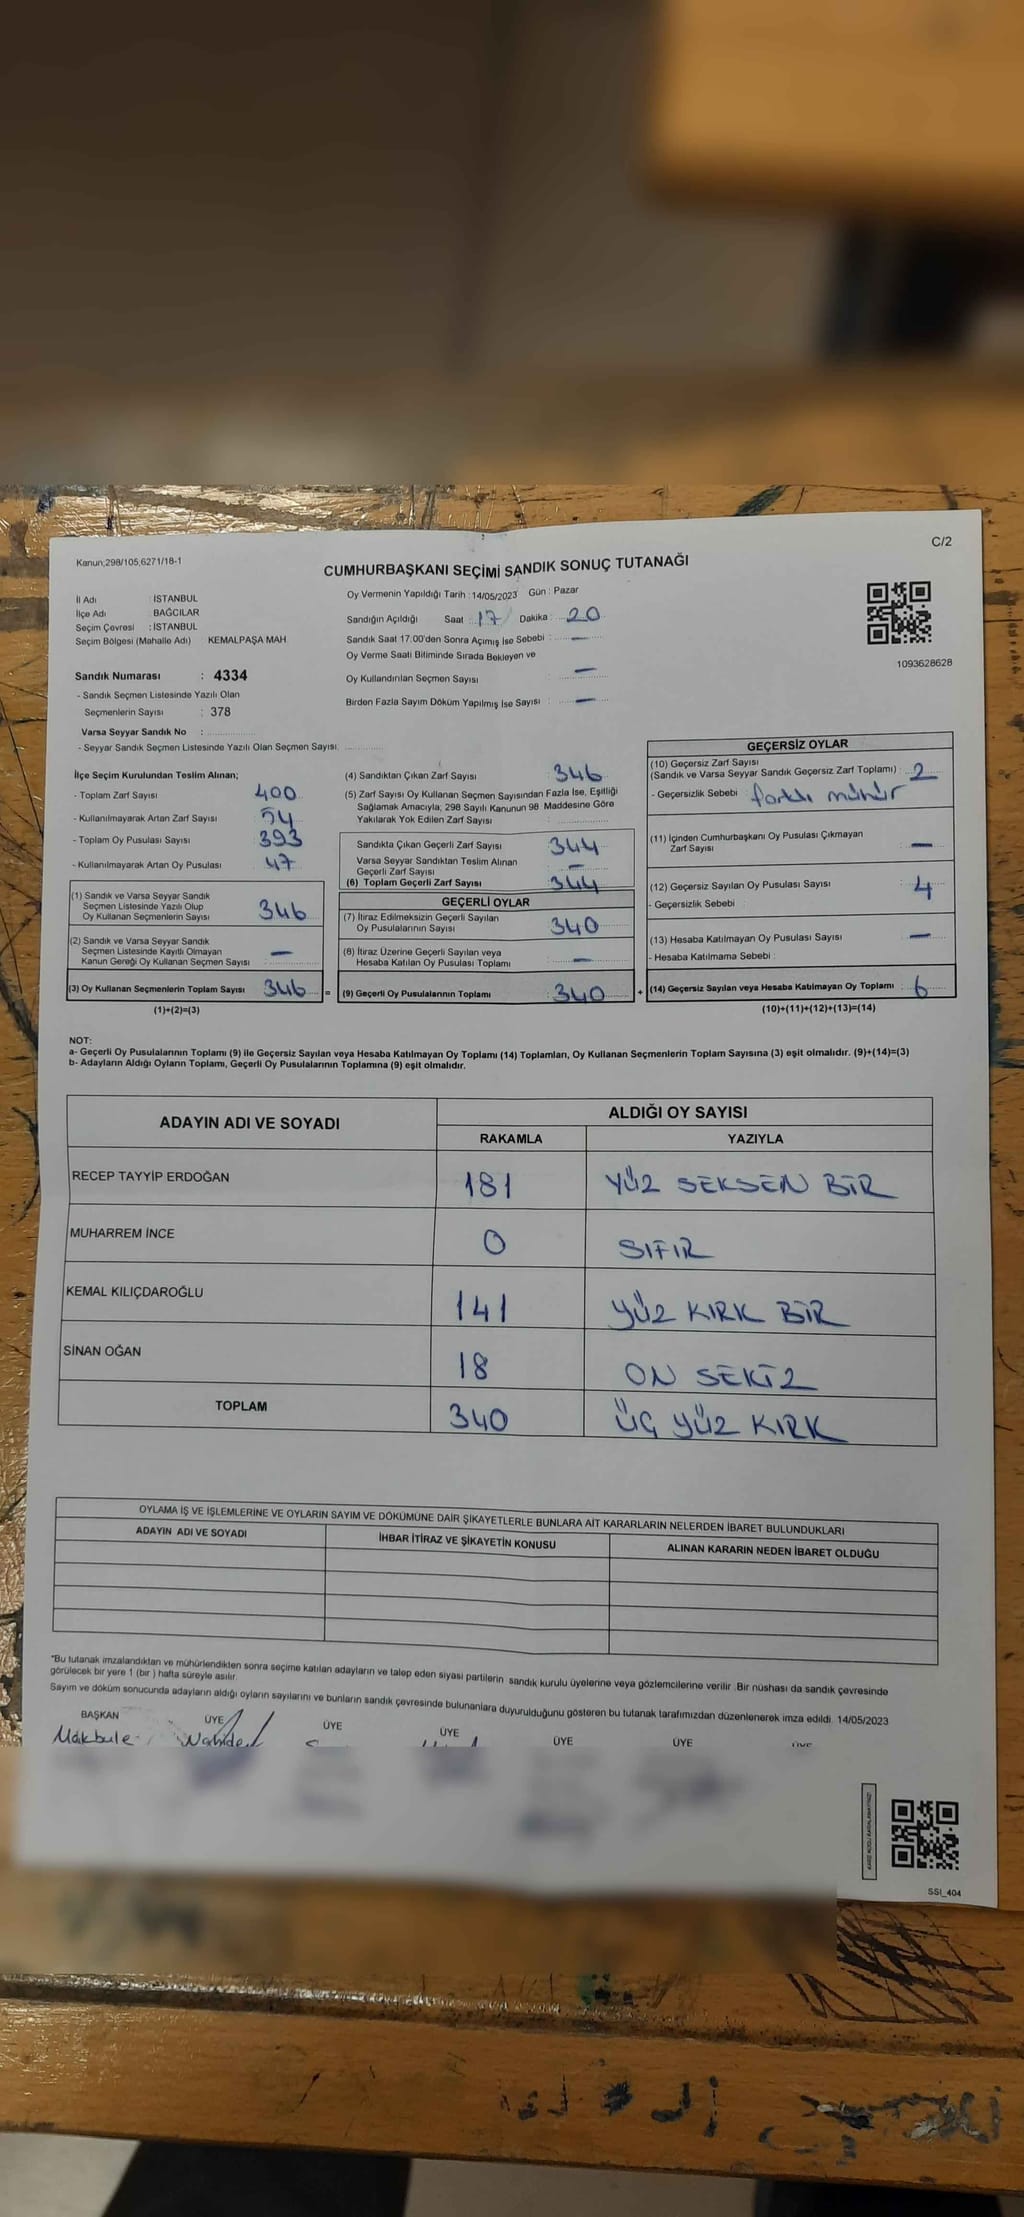 C/2
Kanun;298/105,6271/18-1
CUMHURBAŞKANI SEÇİMİ SANDIK SONUÇ TUTANAĞI
İl Adı : İSTANBUL
İlçe Adı : BAĞCILAR
Seçim Çevresi : İSTANBUL
Seçim Bölgesi (Mahalle Adı) KEMALPAŞA MAH
Oy Vermenin Yapıldığı Tarih : 14/05/2023 Gün : Pazar
Sandığın Açıldığı Saat : 17 Dakika : 20
Sandık Saat 17.00'den Sonra Açımış İse Sebebi : —
Oy Verme Saati Bitiminde Sırada Bekleyen ve
Oy Kullandırılan Seçmen Sayısı : —
Birden Fazla Sayım Döküm Yapılmış İse Sayısı : —
1093628628
Sandık Numarası : 4334
- Sandık Seçmen Listesinde Yazılı Olan
Seçmenlerin Sayısı : 378
Varsa Seyyar Sandık No :
- Seyyar Sandık Seçmen Listesinde Yazılı Olan Seçmen Sayısı.
İlçe Seçim Kurulundan Teslim Alınan;
- Toplam Zarf Sayısı 400
- Kullanılmayarak Artan Zarf Sayısı 54
- Toplam Oy Pusulası Sayısı 393
- Kullanılmayarak Artan Oy Pusulası 47
(1) Sandık ve Varsa Seyyar Sandık
Seçmen Listesinde Yazılı Olup
Oy Kullanan Seçmenlerin Sayısı 346
(2) Sandık ve Varsa Seyyar Sandık
Seçmen Listesinde Kayıtlı Olmayan
Kanun Gereği Oy Kullanan Seçmen Sayısı —
(3) Oy Kullanan Seçmenlerin Toplam Sayısı 346 =
(1)+(2)=(3)
(4) Sandıktan Çıkan Zarf Sayısı : 346
(5) Zarf Sayısı Oy Kullanan Seçmen Sayısından Fazla İse, Eşitliği
Sağlamak Amacıyla; 298 Sayılı Kanunun 98. Maddesine Göre
Yakılarak Yok Edilen Zarf Sayısı :
Sandıkta Çıkan Geçerli Zarf Sayısı : 344
Varsa Seyyar Sandıktan Teslim Alınan
Geçerli Zarf Sayısı : —
(6) Toplam Geçerli Zarf Sayısı : 344
GEÇERLİ OYLAR
(7) İtiraz Edilmeksizin Geçerli Sayılan
Oy Pusulalarının Sayısı : 340
(8) İtiraz Üzerine Geçerli Sayılan veya
Hesaba Katılan Oy Pusulası Toplamı : —
(9) Geçerli Oy Pusulalarının Toplamı : 340 +
GEÇERSİZ OYLAR
(10) Geçersiz Zarf Sayısı
(Sandık ve Varsa Seyyar Sandık Geçersiz Zarf Toplamı) : 2
- Geçersizlik Sebebi : farklı mühür
(11) İçinden Cumhurbaşkanı Oy Pusulası Çıkmayan
Zarf Sayısı : —
(12) Geçersiz Sayılan Oy Pusulası Sayısı : 4
- Geçersizlik Sebebi :
(13) Hesaba Katılmayan Oy Pusulası Sayısı : —
- Hesaba Katılmama Sebebi :
(14) Geçersiz Sayılan veya Hesaba Katılmayan Oy Toplamı : 6
(10)+(11)+(12)+(13)=(14)
NOT:
a- Geçerli Oy Pusulalarının Toplamı (9) ile Geçersiz Sayılan veya Hesaba Katılmayan Oy Toplamı (14) Toplamları, Oy Kullanan Seçmenlerin Toplam Sayısına (3) eşit olmalıdır. (9)+(14)=(3)
b- Adayların Aldığı Oyların Toplamı, Geçerli Oy Pusulalarının Toplamına (9) eşit olmalıdır.
ADAYIN ADI VE SOYADI ALDIĞI OY SAYISI
RAKAMLA YAZIYLA
RECEP TAYYİP ERDOĞAN 181 YÜZ SEKSEN BİR
MUHARREM İNCE 0 SIFIR
KEMAL KILIÇDAROĞLU 141 YÜZ KIRK BİR
SİNAN OĞAN 18 ON SEKİZ
TOPLAM 340 ÜÇ YÜZ KIRK
OYLAMA İŞ VE İŞLEMLERİNE VE OYLARIN SAYIM VE DÖKÜMÜNE DAİR ŞİKAYETLERLE BUNLARA AİT KARARLARIN NELERDEN İBARET BULUNDUKLARI
ADAYIN ADI VE SOYADI İHBAR İTİRAZ VE ŞİKAYETİN KONUSU ALINAN KARARIN NEDEN İBARET OLDUĞU
*Bu tutanak imzalandıktan ve mühürlendikten sonra seçime katılan adayların ve talep eden siyasi partilerin sandık kurulu üyelerine veya gözlemcilerine verilir .Bir nüshası da sandık çevresinde
görülecek bir yere 1 (bir ) hafta süreyle asılır.
Sayım ve döküm sonucunda adayların aldığı oyların sayılarını ve bunların sandık çevresinde bulunanlara duyurulduğunu gösteren bu tutanak tarafımızdan düzenlenerek imza edildi. 14/05/2023
BAŞKAN ÜYE ÜYE ÜYE ÜYE ÜYE ÜYE
Makbule Nahide
SSI_404